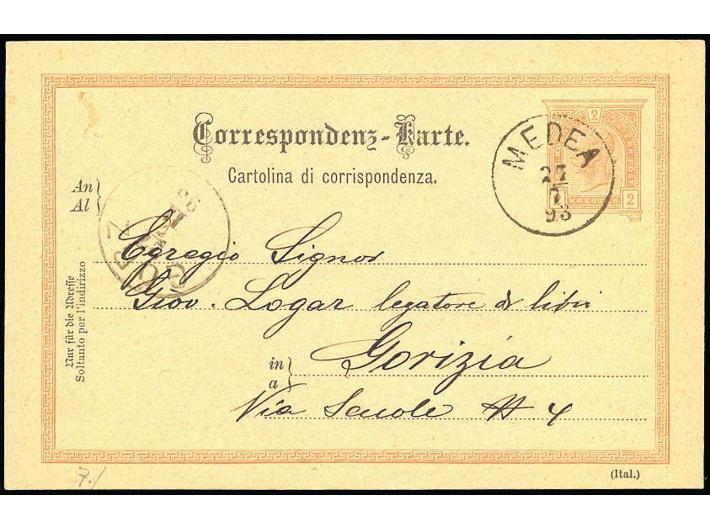 Correspondenz-Karte.
Cartolina di corrispondenza.
2
2
MEDEA
27
7
93
An
Al
Egregio Signor
Giov. Logar legatore di libri
in
a
Gorizia
Via Scuole N 4
Nur für die Adresse
Soltanto per l'indirizzo
7./
(Ital.)